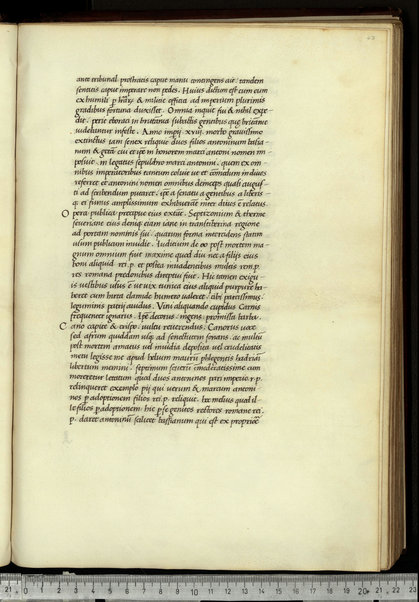 ante tribunal prostratis caput manu contingens ait. tandem
sentitis caput imperare non pedes. Huius dictum est cum eum
ex humili p lras & militie officia ad imperium plurimis
gradibus fortuna duxisset. Omnia inquit fui & nihil expe
dit. perit eboraci in britania subactis gentibus que britanie
uidebantur infeste. Anno imperij xviij. morbo grauissimo
extinctus iam senex reliquit duos filios antoninum bassia
num & getam cui et ipse in honorem marci antonini nomen im
posuit. in legatus sepulchro marci antonini. quem ex om
nibus imperatoribus tantum coluit ut et commodum in diuos
referret et antonini nomen omnibus deinceps quasi augus
ti ad scribendum putaret. ipse a senatu agentibus a liberis
qui ei funus amplissimum exhibuerant inter diuos e relatus.
Opera publica precipue eius extant. Septizonium & therme
seueriane eius denique etiam iane in transtiberina regione
ad portam nominis sui. quarum forma intercidens statim
usum publicum inuidit. Iuditium de eo post mortem ma
gnum omnium fuit maxime quod diu nec a filijs eius
boni aliquid rei.p. et postea inuadentibus multis rem.p.
res romana predonibus direptui fuit. Hic tamen exigu
is uestibus usus e ut uix tunica eius aliquid purpure ha
beret cum hirta clamide humeros ualeret. cibi parcissimus.
leguminis patrij auidus. Vini aliquando cupidus Carnis
frequenter ignarus. Ipse decorus. ingens. promissa barba.
Cano capite & crispo. uultu reuerendus. Canorus uoce
sed afrum quiddam usque ad senectutem sonans. ac multum
post mortem amatus uel inuidia deposita uel crudelitatis
metu legisse me apud helium maurum phlegontis hadriani
libertum memini. septimum seuerum inmoderatissime cum
moreretur letatum quod duos antoninos pari imperio r.p.
relinqueret exemplo pij qui uerum & marcum antonini
nos p adoptionem filios rei.p. reliquit. hoc melius quod il
le filios p adoptionem. hic p se genitos rectores romane rei.
p. daret antoninum scilicet bassianum qui est ex propriee